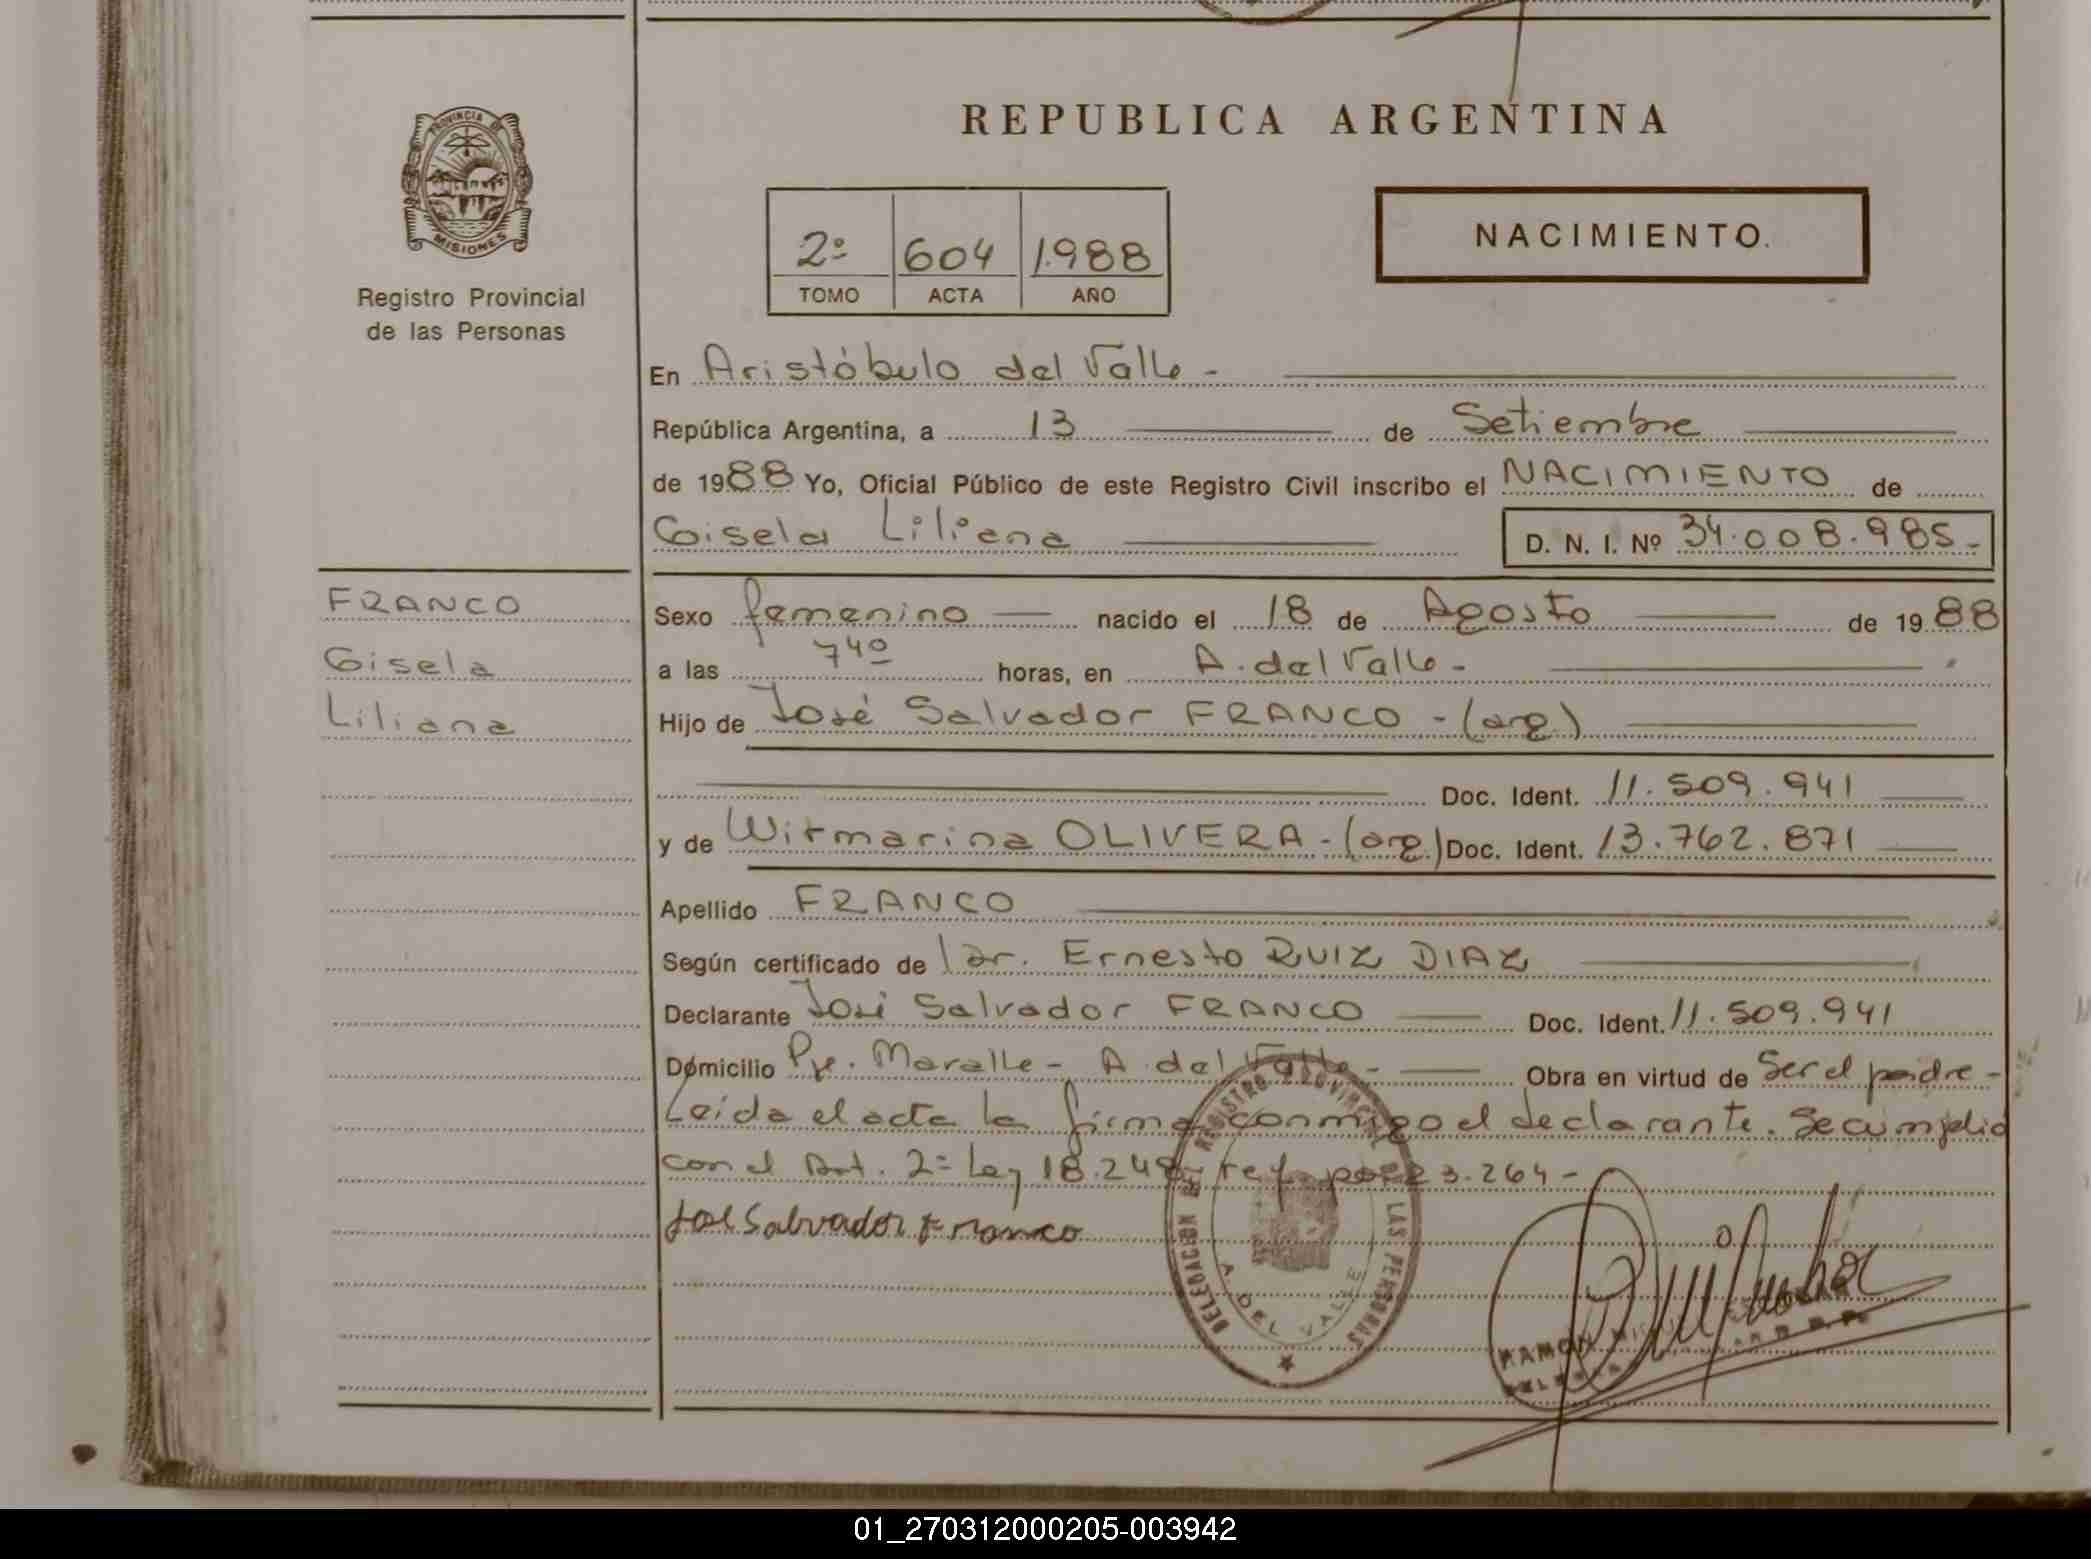 REPUBLICA ARGENTINA
PROVINCIA DE
MISIONES
Registro Provincial
de las Personas
2º 604 1.988
TOMO ACTA AÑO
NACIMIENTO.
En Aristóbulo del Valle -
República Argentina, a 13 de Setiembre
de 1988 Yo, Oficial Público de este Registro Civil inscribo el NACIMIENTO de
Gisela Liliana D. N. I. Nº 34.008.985-
FRANCO
Gisela
Liliana
Sexo femenino nacido el 18 de Agosto de 1988
a las 7 40 horas, en A. del Valle -
Hijo de José Salvador FRANCO - (arg)
Doc. Ident. 11.509.941
y de Wirmarina OLIVERA - (arg.) Doc. Ident. 13.762.871
Apellido FRANCO
Según certificado de Dr. Ernesto RUIZ DIAZ
Declarante José Salvador FRANCO Doc. Ident. 11.509.941
Domicilio Pje. Maralle - A. del Valle - Obra en virtud de Ser el padre -
Leída el acta la firma conmigo el declarante. Se cumplió
con el Art. 2º Ley 18.248, ref. por 23.264 -
José Salvador Franco
DELEGACION DEL REGISTRO PROVINCIAL DE LAS PERSONAS
A. DEL VALLE
RAMON
01_270312000205-003942